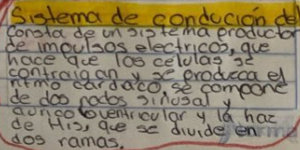 Sistema de conducion del
consta de un sistema productor
de impulsos electricos, que
hace que las celulas se
contraigan y se produzca el
ritmo cardaco, se compone
de dos nodos sinusal y
auriculoventricular y la haz
de His, que se divide en
dos ramas.